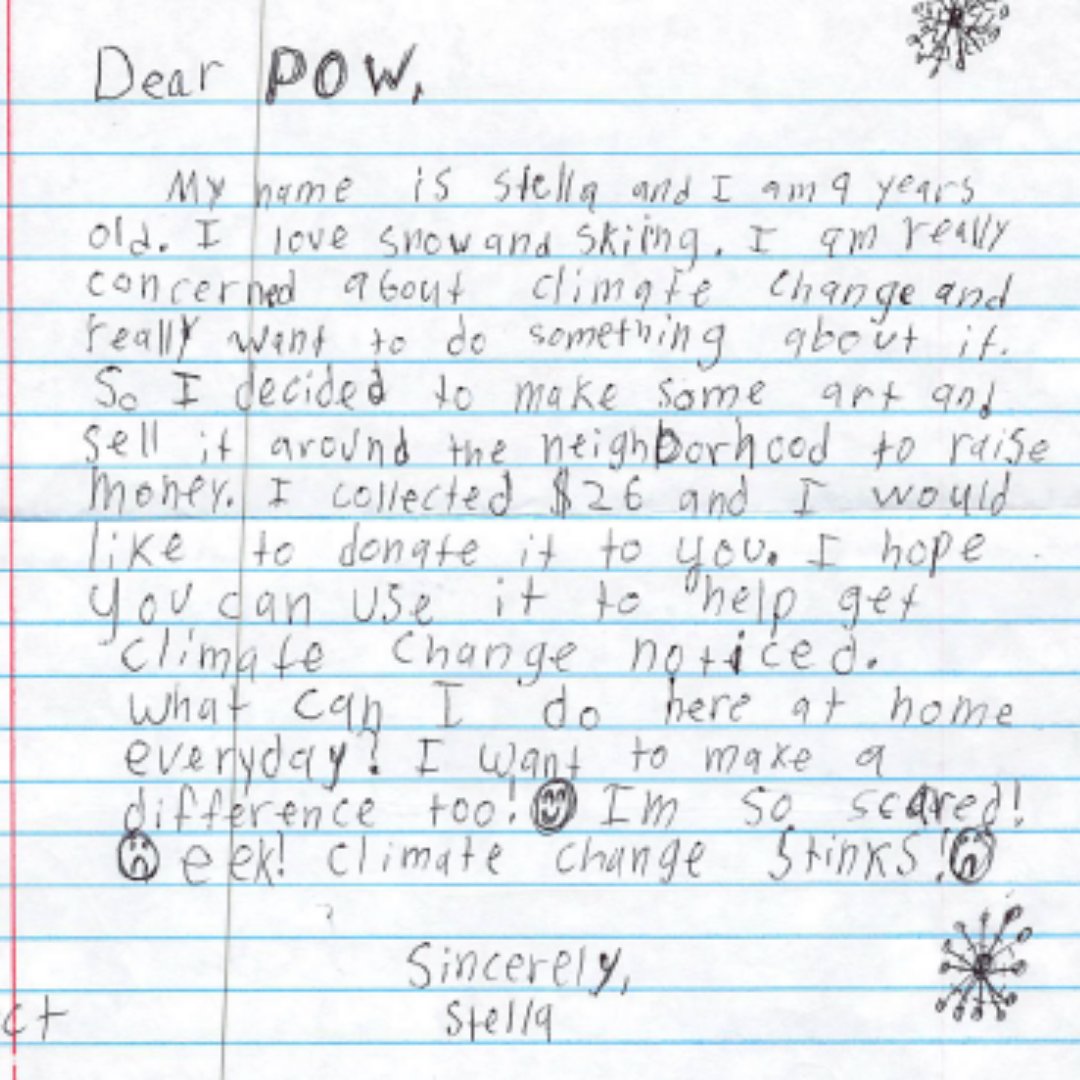 Dear POW,
My name is Stella and I am 9 years
old. I love snow and skiing. I am really
concerned about climate change and
really want to do something about it.
So I decided to make some art and
sell it around the neighborhood to raise
money. I collected $26 and I would
like to donate it to you. I hope
you can use it to help get
climate change noticed.
what can I do here at home
everyday? I want to make a
difference too! Im so scared!
eek! climate change stinks!
Sincerely,
ct Stella